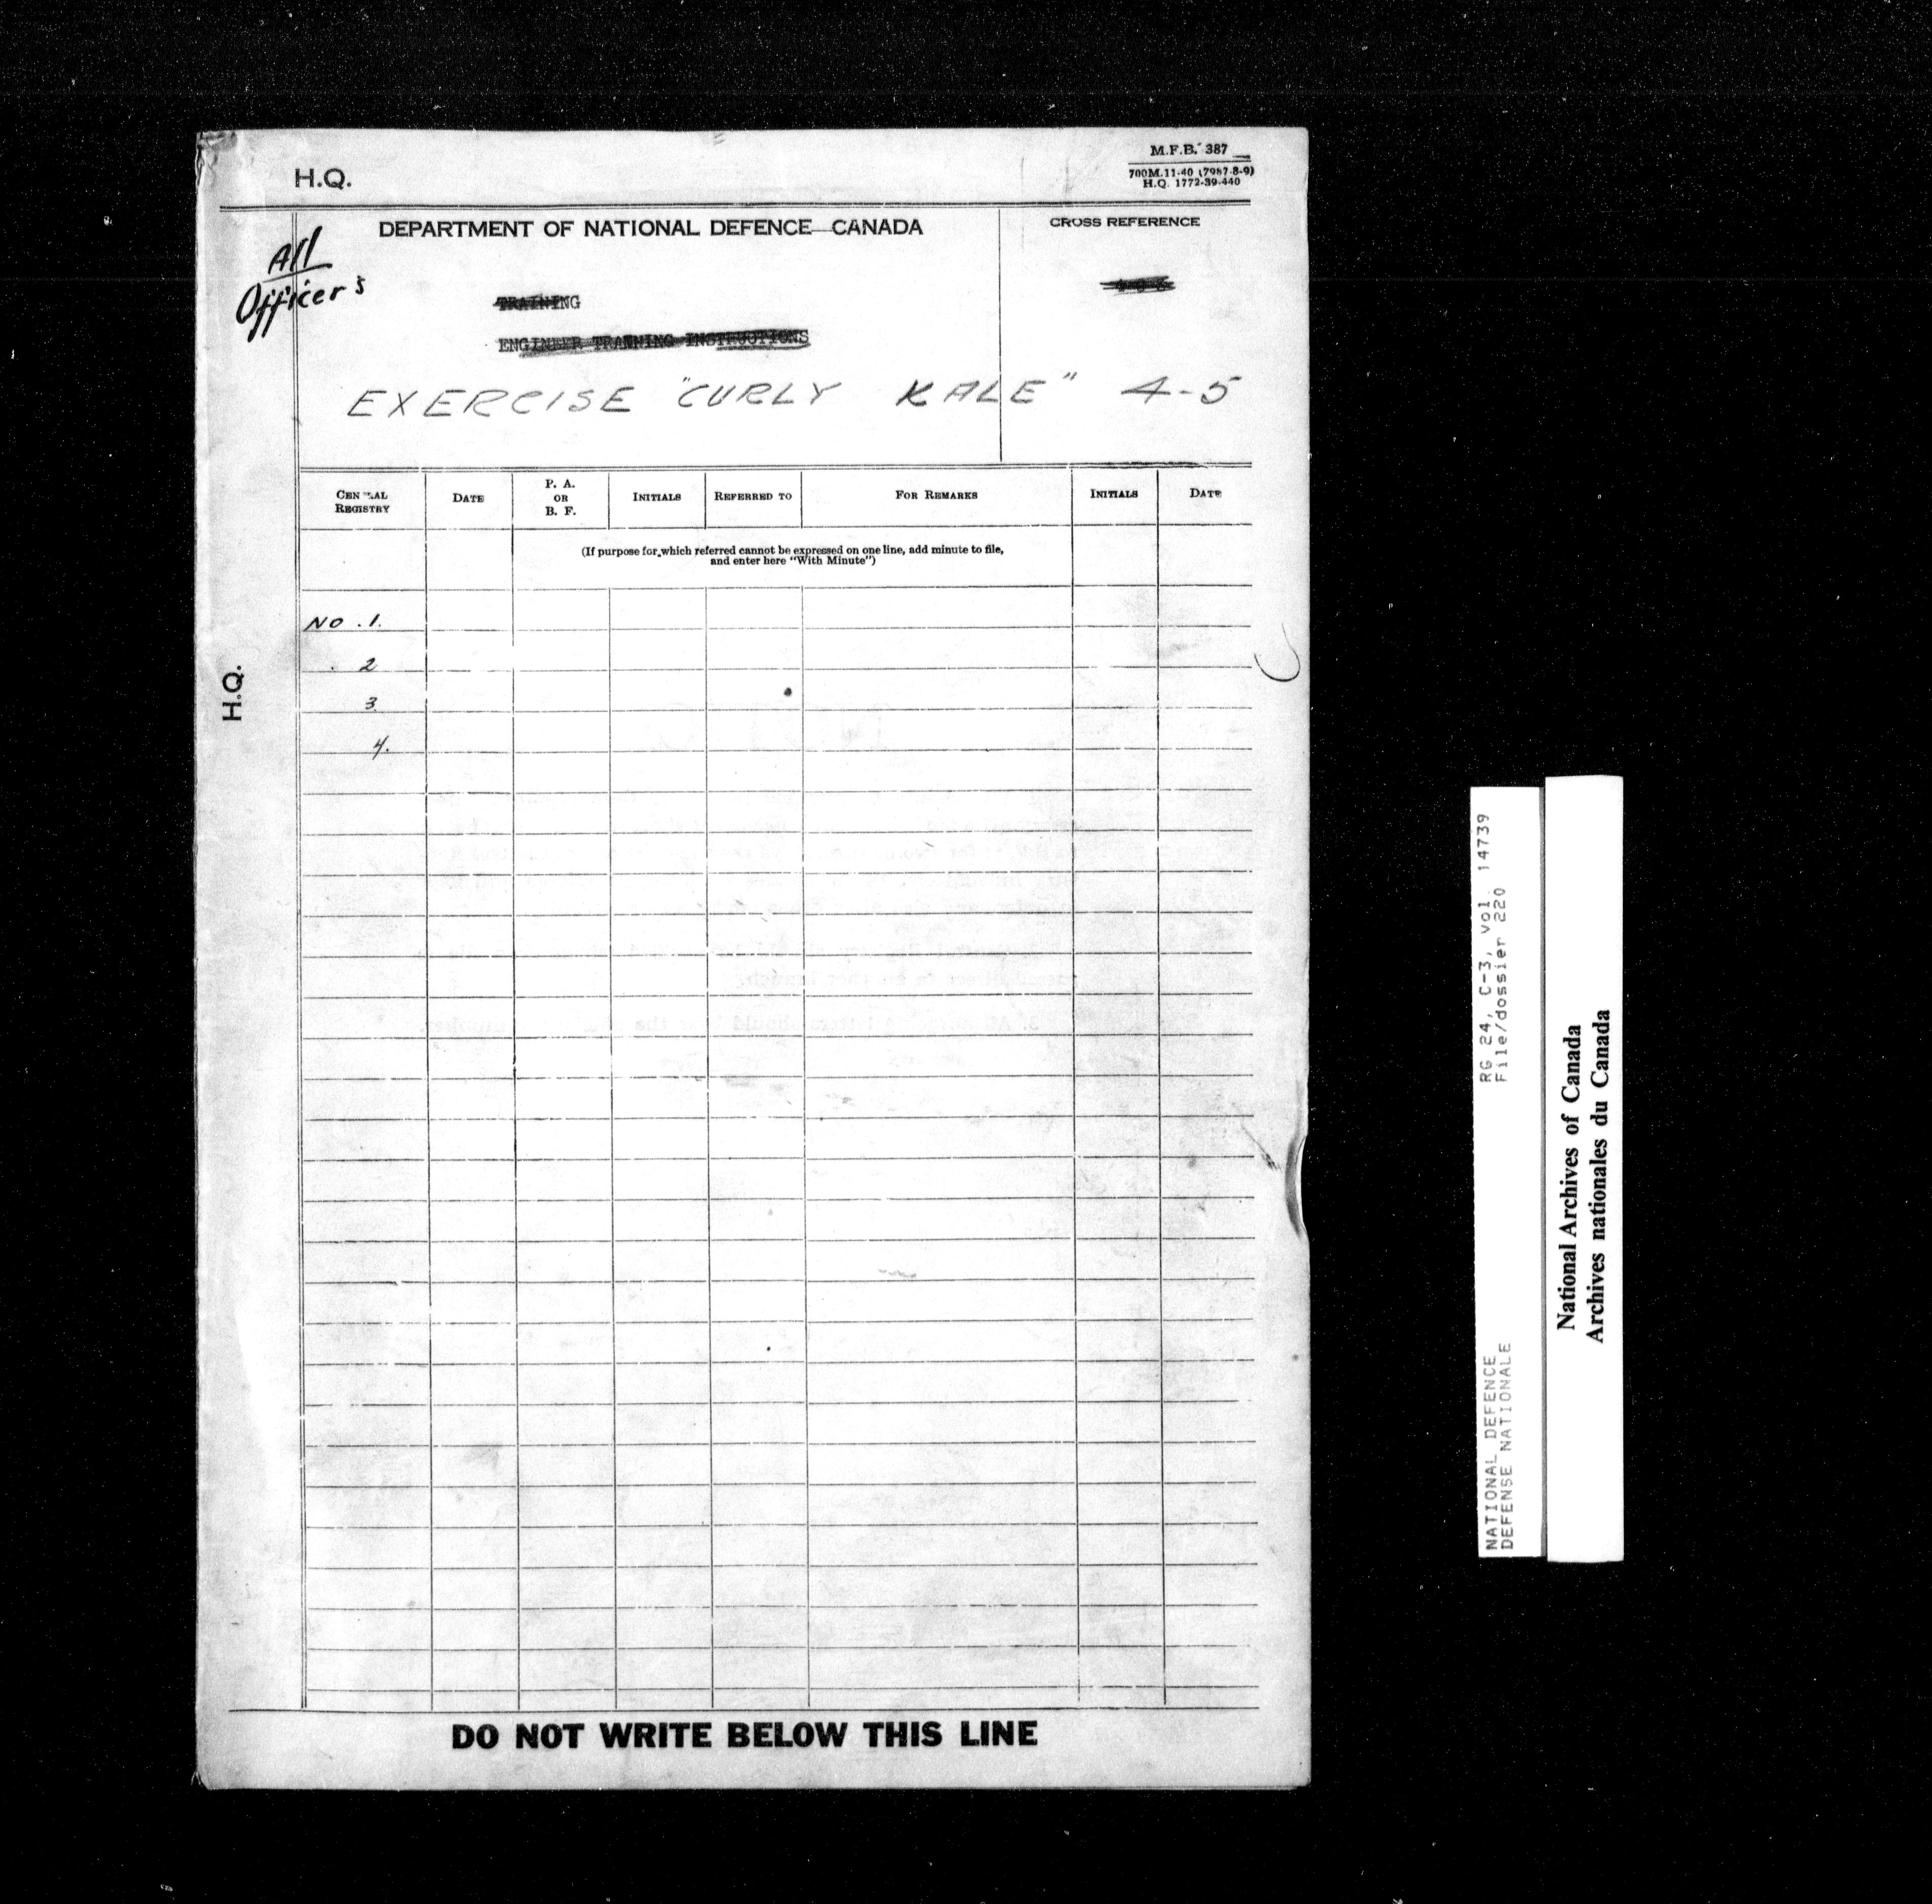 H.Q.
M.F.B. 387
700M.11-40 (7987-8-9)
H.Q. 1772-39-440
DEPARTMENT OF NATIONAL DEFENCE—CANADA
CROSS REFERENCE
All
Officers
TRAINING
ENGINEER TRAINING INSTRUCTIONS
EXERCISE "CURLY KALE" 4-5
CENTRAL REGISTRY
DATE
P. A. OR B. F.
INITIALS
REFERRED TO
FOR REMARKS
INITIALS
DATE
(If purpose for which referred cannot be expressed on one line, add minute to file,
and enter here "With Minute")
NO. 1.
2
3
4.
H.Q.
DO NOT WRITE BELOW THIS LINE
NATIONAL DEFENCE RG 24, C-3, vol. 14739
DEFENSE NATIONALE File/dossier 220
National Archives of Canada
Archives nationales du Canada